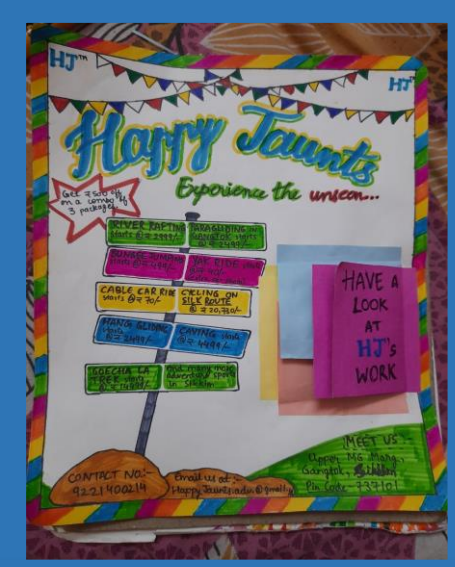 HJ™
HJ
Happy Jaunts
Experience the unseen...
Get ₹500 off
on a combo of
3 packages
RIVER RAFTING
starts @ ₹2999/-
PARAGLIDING in
GANGTOK starts
@ ₹2499/-
BUNGEE JUMPING
YAK RIDE
CABLE CAR RIDE
starts @ ₹70/-
CYCLING ON
SILK ROUTE
@ ₹20,780/-
HANG GLIDING
@ ₹2499/-
CAVING starts
@ ₹4499/-
GOECHA LA
TREK starts
and many more
adventure sports
in Sikkim
HAVE A
LOOK
AT
HJ's
WORK
MEET US:-
Upper MG Marg,
Gangtok, Sikkim
Pin Code-737101
CONTACT NO:-
9221400214
Email us at:-